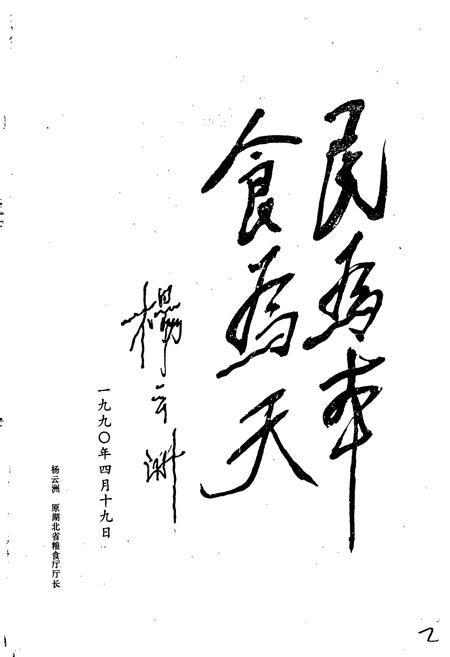 民為本
食為天
楊云洲
一九九〇年四月十九日
杨云洲　原湖北省粮食厅厅长
2